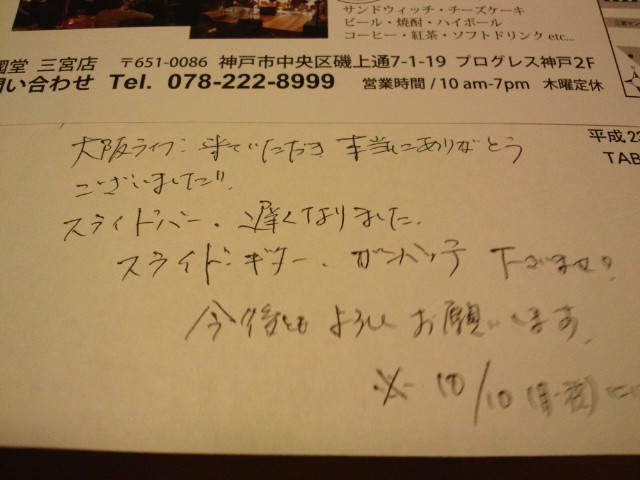 サンドウィッチ・チーズケーキ
ビール・焼酎・ハイボール
コーヒー・紅茶・ソフトドリンク etc...
堂 三宮店 〒651-0086 神戸市中央区磯上通7-1-19 プログレス神戸2F
い合わせ Tel. 078-222-8999 営業時間/10 am-7pm 木曜定休
平成2
TAB
大阪ライブ 来ていただき 本当にありがとう
ございました!!
スライドバー、遅くなりました。
スライドギター、ガンバッテ 下さいませ!
今後とも よろしく お願いします。
※ 10/10 (月・祝) に